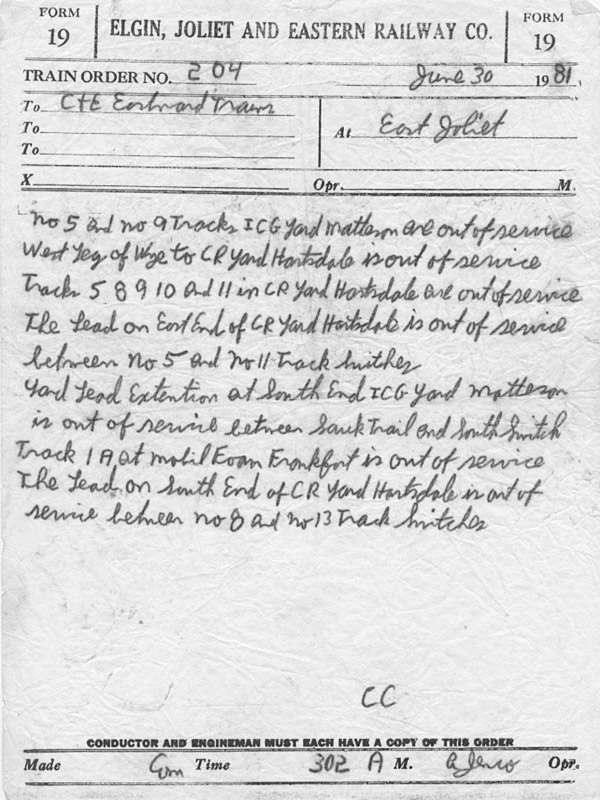 FORM 19 ELGIN, JOLIET AND EASTERN RAILWAY CO. FORM 19
TRAIN ORDER NO. 204 June 30 1981
To C+E Eastward Trains
To At East Joliet
To
X Opr. M.
No 5 and No 9 Tracks ICG Yard Matteson are out of service
West Leg of Wye to CR Yard Hartsdale is out of service
Tracks 5 8 9 10 and 11 in CR Yard Hartsdale are out of service
The Lead on East End of CR Yard Hartsdale is out of service
between No 5 and No 11 Track Switches
Yard Lead Extention at South End ICG Yard Matteson
is out of service between Sauk Trail and South Switch
Track 1A at Mobil Frankfort is out of service
The Lead on South End of CR Yard Hartsdale is out of
service between No 8 and No 13 Track Switches
CC
CONDUCTOR AND ENGINEMAN MUST EACH HAVE A COPY OF THIS ORDER
Made Com Time 302 A M. Opr.